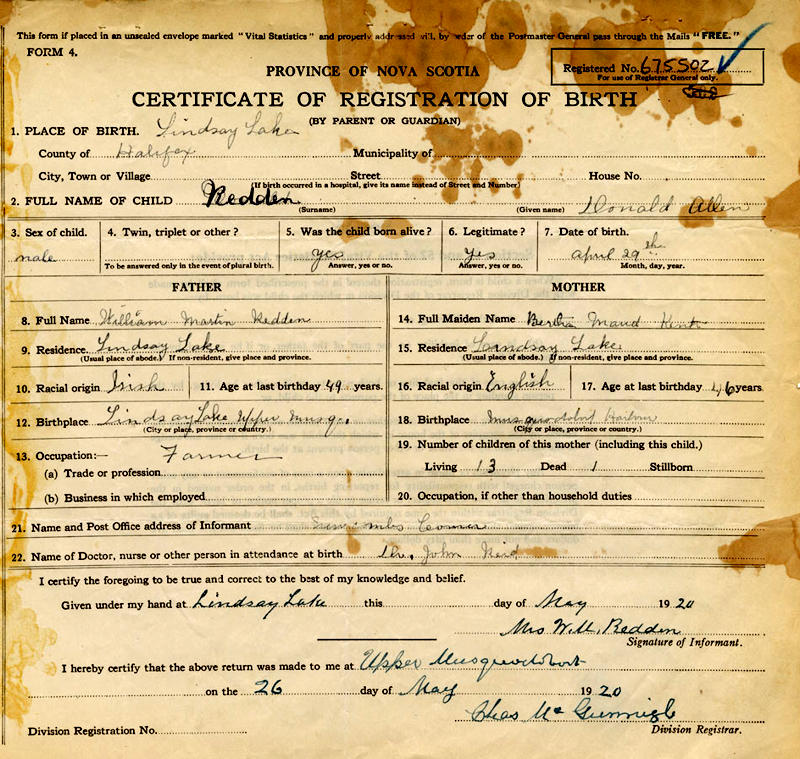 This form if placed in an unsealed envelope marked "Vital Statistics" and properly addressed will, by order of the Postmaster General pass through the Mails "FREE."
FORM 4.
Registered No. 675502
For use of Registrar General only.
PROVINCE OF NOVA SCOTIA
CERTIFICATE OF REGISTRATION OF BIRTH
(BY PARENT OR GUARDIAN)
1. PLACE OF BIRTH. Lindsay Lake
County of Halifax Municipality of
City, Town or Village Street House No.
(If birth occurred in a hospital, give its name instead of Street and Number)
2. FULL NAME OF CHILD Redden Donald Allen
(Surname) (Given name)
3. Sex of child. 4. Twin, triplet or other? 5. Was the child born alive? 6. Legitimate? 7. Date of birth.
male yes yes April 29th
To be answered only in the event of plural birth. Answer, yes or no. Answer, yes or no. Month, day, year.
FATHER MOTHER
8. Full Name William Martin Redden 14. Full Maiden Name Bertha Maud Kent
9. Residence Lindsay Lake 15. Residence Lindsay Lake
(Usual place of abode.) If non-resident, give place and province. (Usual place of abode.) If non-resident, give place and province.
10. Racial origin Irish 11. Age at last birthday 49 years. 16. Racial origin English 17. Age at last birthday 46 years.
12. Birthplace Lindsay Lake Upper Musq. 18. Birthplace Musquodoboit Harbour
(City or place, province or country.) (City or place, province or country.)
13. Occupation:— Farmer 19. Number of children of this mother (including this child.)
(a) Trade or profession Living 13 Dead 1 Stillborn
(b) Business in which employed 20. Occupation, if other than household duties
21. Name and Post Office address of Informant Corner
22. Name of Doctor, nurse or other person in attendance at birth Dr. John Reid
I certify the foregoing to be true and correct to the best of my knowledge and belief.
Given under my hand at Lindsay Lake this day of May 1920
Mrs W.M. Redden
Signature of Informant.
I hereby certify that the above return was made to me at Upper Musquodoboit
on the 26 day of May 1920
Chas
Division Registration No. Division Registrar.